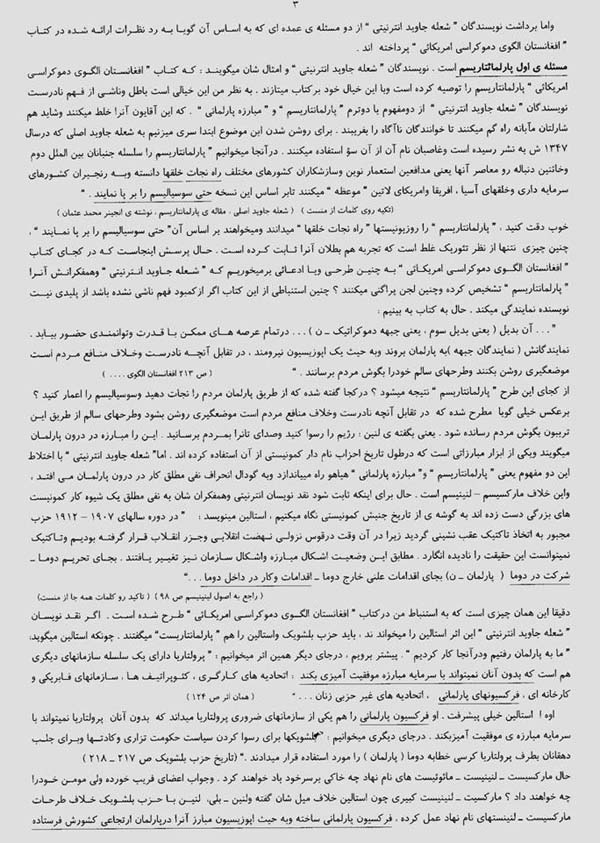 ۳
واما برداشت نویسندگان " شعله جاوید انترنیتی " از دو مسئله ی عمده ای که به اساس آن گویا به رد نظرات ارائه شده در کتاب
" افغانستان الگوی دموکراسی امریکائی " پرداخته اند .
مسئله ی اول پارلمانتاریسم است . نویسندگان " شعله جاوید انترنیتی " و امثال شان میگویند : که کتاب " افغانستان الگوی دموکراسی
امریکائی " پارلمانتاریسم را توصیه کرده است وبا این خیال خود بر کتاب میتازند . به نظر من این خیالی است باطل وناشی از فهم نادرست
نویسندگان " شعله جاوید انترنیتی " از دومفهوم یا دوترم " پارلمانتاریسم " و " مبارزه پارلمانی " . که این آقایون آنرا خلط میکنند وشاید هم
شارلتان مآبانه راه گم میکنند تا خوانندگان ناآگاه را بفریبند . برای روشن شدن این موضوع ابتدا سری میزنیم به شعله جاوید اصلی که درسال
۱۳۴۷ ش به نشر رسیده است وغاصبان نام آن از آن سؤ استفاده میکنند . درآنجا میخوانیم " پارلمانتاریسم را سلسله جنبانان بین الملل دوم
وخائنین دنباله رو معاصر آنها یعنی مدافعین استعمار نوین وسازشکاران کشورهای مختلف راه نجات خلقها دانسته وبه رنجبران کشورهای
سرمایه داری وخلقهای آسیا ، افریقا وامریکای لاتین " موعظه " میکنند تابر اساس این نسخه حتی سوسیالیسم را بر پا نمایند . "
(تکیه روی کلمات از منست ) ( شعله جاوید اصلی . مقاله ی پارلمانتاریسم ، نوشته ی انجینر محمد عثمان )
خوب دقت کنید ، " پارلمانتاریسم " را رویزیونیستها " راه نجات خلقها " میدانند ومیخواهند بر اساس آن" حتی سوسیالیسم را بر پا نمایند " ،
چنین چیزی نتنها از نظر تئوریک غلط است که تجربه هم بطلان آنرا ثابت کرده است . حال پرسش اینجاست که در کجای کتاب
" افغانستان الگوی دموکراسی امریکائی " به چنین طرحی ویا ادعائی برمیخوریم که " شعله جاوید انترنیتی " وهمفکرانش آنرا
" پارلمانتاریسم " تشخیص کرده وچنین لجن پراگنی میکنند ؟ چنین استنباطی از این کتاب اگر ازکمبود فهم ناشی نشده باشد از پلیدی نیت
نویسنده نمایندگی میکند . حال به کتاب به بینیم :
" ... آن بدیل ( یعنی بدیل سوم ، یعنی جبهه دموکراتیک ـ ن ) ... درتمام عرصه های ممکن با قدرت وتوانمندی حضور بیابد .
نمایندگانش ( نمایندگان جبهه )به پارلمان بروند وبه حیث یک اپوزیسیون نیرومند ، در تقابل آنچه نادرست وخلاف منافع مردم است
موضعگیری روشن بکنند وطرحهای سالم خودرا بگوش مردم برسانند . " ( ص ۲۱۳ افغانستان الگوی .... )
از کجای این طرح " پارلمانتاریسم " نتیجه میشود ؟ درکجا گفته شده که از طریق پارلمان مردم را نجات دهید وسوسیالیسم را اعمار کنید ؟
برعکس خیلی گویا مطرح شده که در تقابل آنچه نادرست وخلاف منافع مردم است موضعگیری روشن بشود وطرحهای سالم از طریق این
تریبون بگوش مردم رسانده شود . یعنی بگفته ی لنین : رژیم را رسوا کنید وصدای تانرا بمردم برسانید . این را مبارزه در درون پارلمان
میگویند ویکی از ابزار مبارزاتی است که درطول تاریخ احزاب نام دار کمونیستی از آن استفاده کرده اند . اما" شعله جاوید انترنیتی " با اختلاط
این دو مفهوم یعنی " پارلمانتاریسم " و" مبارزه پارلمانی " هیاهو راه میاندازد وبه گودال انحراف نفی مطلق کار در درون پارلمان می افتد ،
واین خلاف مارکسیسم ـ لنینیسم است . حال برای اینکه ثابت شود نقد نویسان انترنیتی وهمفکران شان به نفی مطلق یک شیوه کار کمونیست
های بزرگی دست زده اند به گوشه ی از تاریخ جنبش کمونیستی نگاه میکنیم ، استالین مینویسد : " در دوره سالهای ۱۹۰۷ – ۱۹۱۲ حزب
مجبور به اتخاذ تاکتیک عقب نشینی گردید زیرا در آن وقت درقوس نزولی نهضت انقلابی وجزر انقلاب قرار گرفته بودیم وتاکتیک
نمیتوانست این حقیقت را نادیده انگارد . مطابق این وضعیت اشکال مبارزه واشکال سازمان نیز تغییر یافتند . بجای تحریم دوما ـ
شرکت در دوما ( پارلمان ـ ن) بجای اقدامات علنی خارج دوما ـ اقدامات وکار در داخل دوما ... "
( راجع به اصول لنینیسم ص ۹۸ ) ( تاکید رو کلمات همه جا از منست)
دقیقا این همان چیزی است که به استنباط من درکتاب " افغانستان الگوی دموکراسی امریکائی " طرح شده است . اگر نقد نویسان
" شعله جاوید انترنیتی " این اثر استالین را میخواند ند ، باید حزب بلشویک واستالین را هم " پارلمانتاریست" میگفتند . چونکه استالین میگوید:
" ما به پارلمان رفتیم ودرآنجا کار کردیم " . پیشتر برویم ، درجای دیگر همین اثر میخوانیم : " پرولتاریا دارای یک سلسله سازمانهای دیگری
هم است که بدون آنان نمیتواند با سرمایه مبارزه موفقیت آمیزی بکند : اتحادیه های کارگری ، کئوپراتیف ها ، سازمانهای فابریکی و
کارخانه ای ، فرکسیونهای پارلمانی ، اتحادیه های غیر حزبی زنان ... " ( همان اثر ص ۱۲۴ )
اوه ! استالین خیلی پیشرفت . او فرکسیون پارلمانی را هم یکی از سازمانهای ضروری پرولتاریا میداند که بدون آنان پرولتاریا نمیتواند با
سرمایه مبارزه ی موفقیت آمیزبکند . درجای دیگری میخوانیم : " بلشویکها برای رسوا کردن سیاست حکومت تزاری وکادتها وبرای جلب
دهقانان بطرف پرولتاریا کرسی خطابه دوما ( پارلمان ) را مورد استفاده قرار میدادند ." (تاریخ حزب بلشویک ص ۲۱۷ ـ ۲۱۸ )
حال مارکسیست ـ لنینیست ـ مائوئیست های نام نهاد چه خاکی برسرخود باد خواهند کرد . وجواب اعضای فریب خورده ولی مومن خودرا
چه خواهند داد ؟ مارکسیت ـ لنینیست کبیری چون استالین خلاف میل شان گفته ولنین ـ بلی، لنین با حزب بلشویک خلاف طرحات
مارکسیست ـ لننیستهای نام نهاد عمل کرده ، فرکسیون پارلمانی ساخته وبه حیث اپوزیسیون مبارز آنرا درپارلمان ارتجاعی کشورش فرستاده